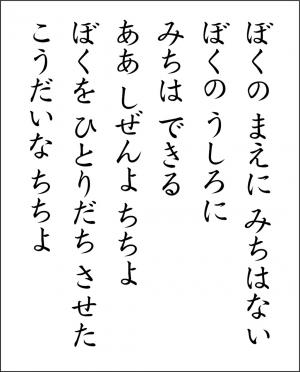 ぼくの まえに みちはない
ぼくの うしろに
みちは できる
ああ しぜんよ ちちよ
ぼくを ひとりだち させた
こうだいな ちちよ